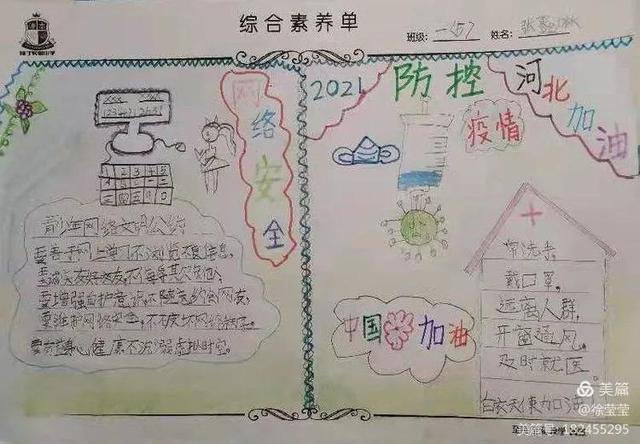 综合素养单
班级:
姓名:
网络安全
青少年网络文明公约
要善于网上学习不浏览不良信息。
要诚实友好交友不侮辱欺诈他人
要增强自护意识不随意约会网友。
要维护网络安全,不破坏网络秩序。
要有益身心健康不沉溺虚拟时空。
2021 防控
疫情
河北加油
中国加油
常洗手
戴口罩。
远离人群。
开窗通风。
及时就医。
美篇
@徐莹莹
美篇号:182455295